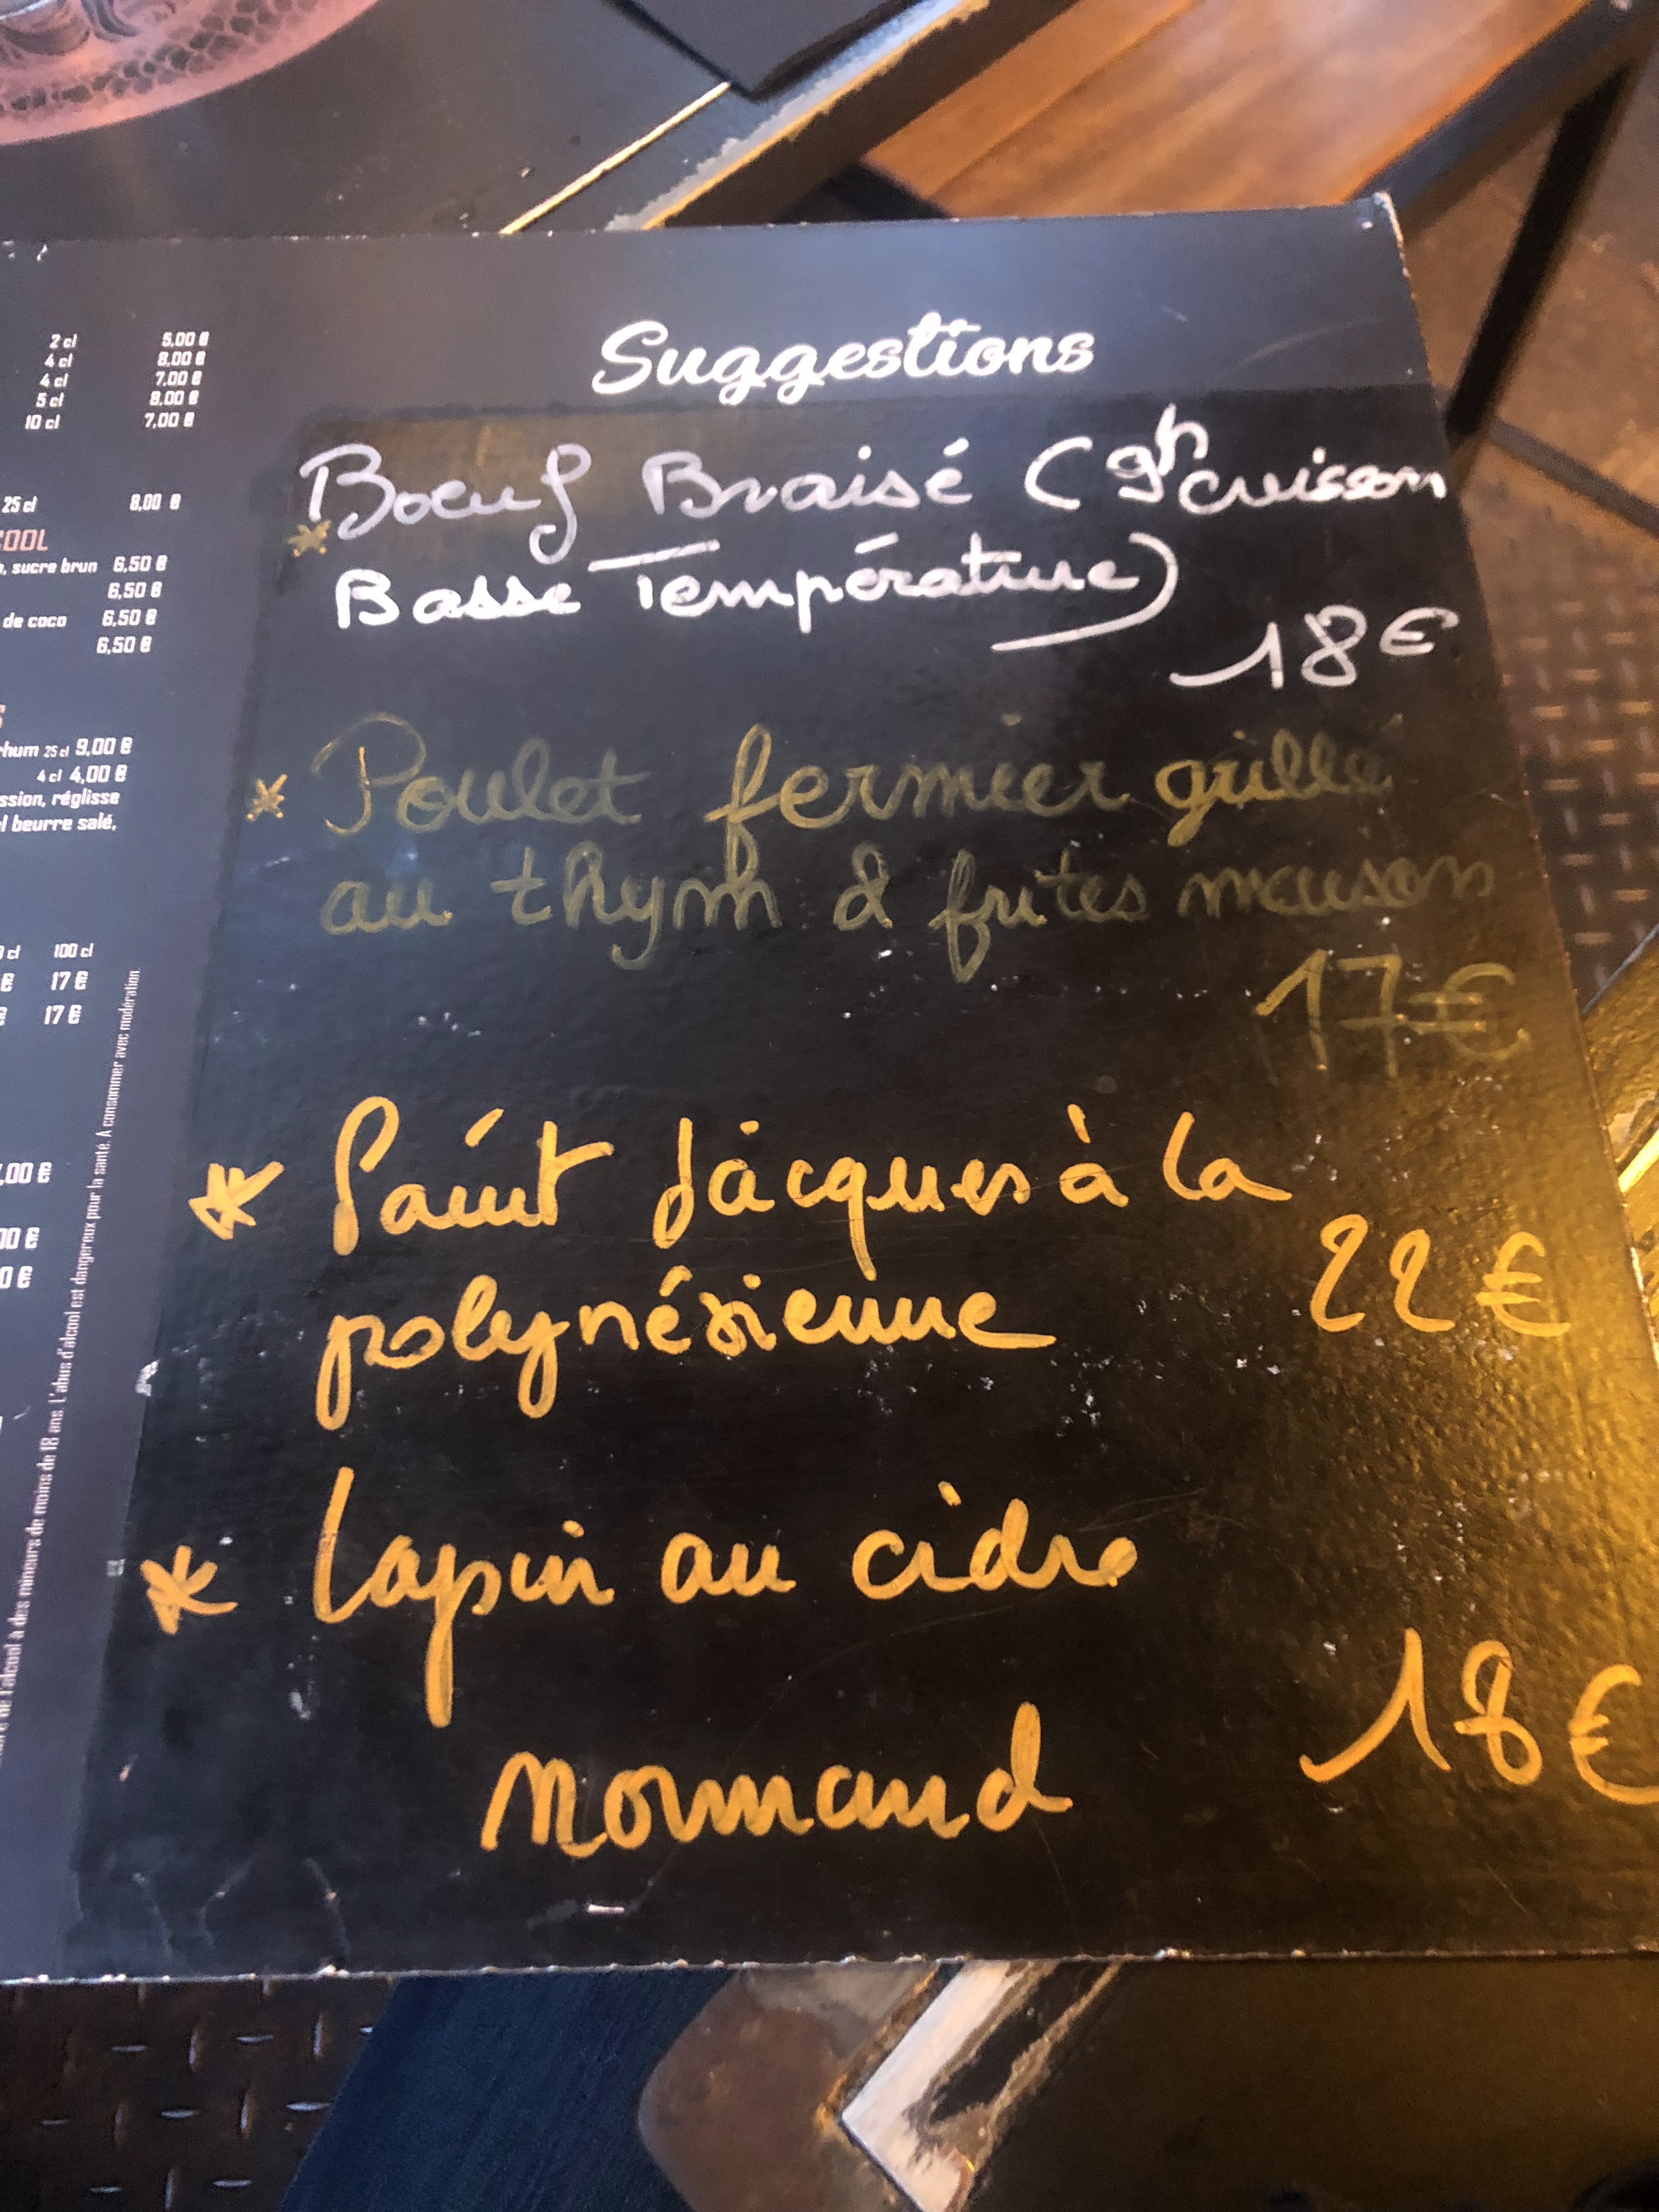 2 cl 5,00 €
4 cl 8,00 €
4 cl 7,00 €
5 cl 8,00 €
10 cl 7,00 €
25 cl 8,00 €
COOL
, sucre brun 6,50 €
6,50 €
de coco 6,50 €
6,50 €
rhum 25 cl 9,00 €
4 cl 4,00 €
ssion, réglisse
l beurre salé,
cl 100 cl
€ 17 €
€ 17 €
,00 €
00 €
0 €
de l'alcool à des mineurs de moins de 18 ans. L'abus d'alcool est dangereux pour la santé. A consommer avec modération.
Suggestions
* Boeuf Braisé (9h cuisson
Basse Température)
18€
* Poulet fermier grillé
au thym & frites maison
17€
* Saint Jacques à la
polynésienne 22€
* Lapin au cidre
normand 18€